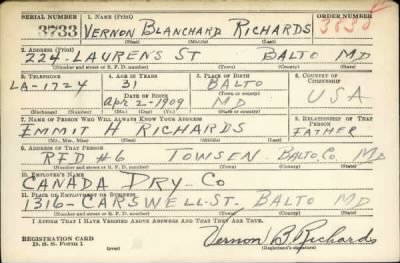 SERIAL NUMBER 1. NAME (Print) ORDER NUMBER
3733 VERNON BLANCHARD RICHARDS
(First) (Middle) (Last)
2. ADDRESS (Print)
224 - LAURENS ST BALTO MD
(Number and street or R. F. D. number) (Town) (County) (State)
3. TELEPHONE 4. AGE IN YEARS 5. PLACE OF BIRTH 6. COUNTRY OF CITIZENSHIP
LA-1724 31 BALTO
DATE OF BIRTH (Town or county)
Apr 2-1909 MD USA
(Exchange) (Number) (Mo.) (Day) (Yr.) (State or country)
7. NAME OF PERSON WHO WILL ALWAYS KNOW YOUR ADDRESS 8. RELATIONSHIP OF THAT PERSON
EMMIT H RICHARDS FATHER
(Mr., Mrs., Miss) (First) (Middle) (Last)
9. ADDRESS OF THAT PERSON
RFD #6 TOWSEN BALTO, CO. MD
(Number and street or R. F. D. number) (Town) (County) (State)
10. EMPLOYER'S NAME
CANADA DRY-CO
11. PLACE OF EMPLOYMENT OR BUSINESS
1316-CARSWELL-ST. BALTO MD
(Number and street or R. F. D. number) (Town) (County) (State)
I AFFIRM THAT I HAVE VERIFIED ABOVE ANSWERS AND THAT THEY ARE TRUE.
REGISTRATION CARD
D. S. S. FORM 1 (over) Vernon B. Richards
(Registrant's signature)